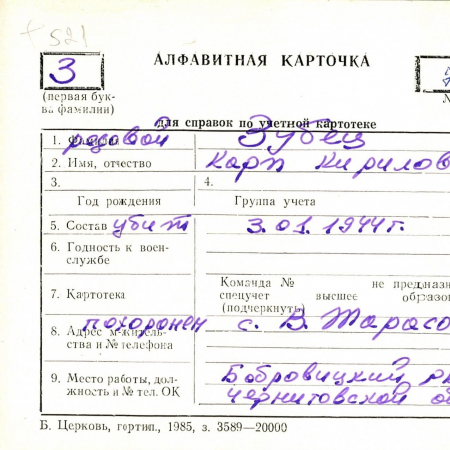 521
АЛФАВИТНАЯ КАРТОЧКА
З
(первая бук-
ва фамилии)
для справок по учетной картотеке
1. рядовой Зубец
2. Имя, отчество Карп Кирилов
3. 4.
Год рождения Группа учета
5. Состав убит 3.01.1944г.
6. Годность к воен-
службе
Команда № не предназн
7. Картотека спецучет высшее образо
(подчеркнуть)
похоронен с. В. Тарасо
8. Адрес м-житель-
ства и № телефона
9. Место работы, дол- Бобровицкий р
жность и № тел. ОК Черниговской об
Б. Церковь, гортип., 1985, з. 3589—20000